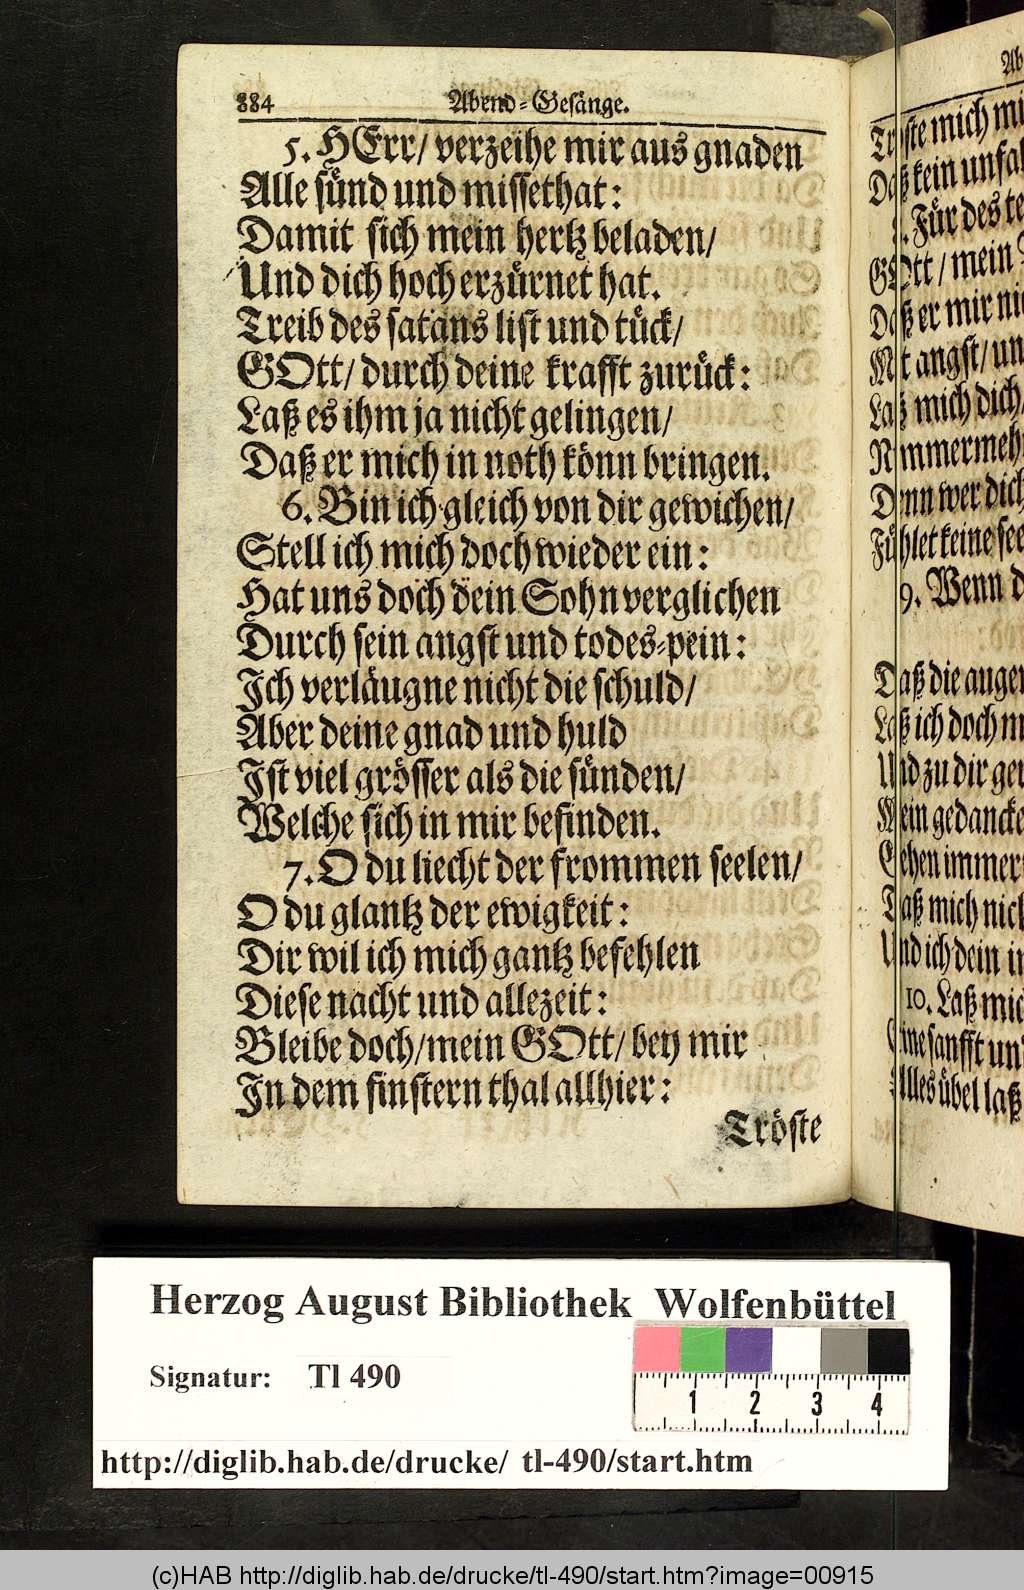 884 Abend-Gesänge.
5. HErr/ verzeihe mir aus gnaden
Alle sünd und missethat:
Damit sich mein hertz beladen/
Und dich hoch erzürnet hat.
Treib des satans list und tück/
GOtt/ durch deine krafft zurück:
Laß es ihm ja nicht gelingen/
Daß er mich in noth könn bringen.
6. Bin ich gleich von dir gewichen/
Stell ich mich doch wieder ein:
Hat uns doch dein Sohn verglichen
Durch sein angst und todes-pein:
Ich verläugne nicht die schuld/
Aber deine gnad und huld
Ist viel grösser als die sünden/
Welche sich in mir befinden.
7. O du liecht der frommen seelen/
O du glantz der ewigkeit:
Dir wil ich mich gantz befehlen
Diese nacht und allezeit:
Bleibe doch/ mein GOtt/ bey mir
In dem finstern thal allhier:
Tröste
Ab
ste mich mi
Daß kein unfal
. Für des te
GOtt/ mein
Daß er mir ni
Mit angst/ un
Laß mich dich
Nimmermeh
Denn wer dich
Fühlet keine see
9. Wenn d
Daß die augen
Laß ich doch m
Und zu dir ger
Mein gedancke
Gehen immer
Daß mich nich
Und ich dein in
10. Laß mic
Eine sanfft un
Alles übel laß
Herzog August Bibliothek Wolfenbüttel
Signatur: Tl 490
1 2 3 4
http://diglib.hab.de/drucke/ tl-490/start.htm
(c)HAB http://diglib.hab.de/drucke/tl-490/start.htm?image=00915